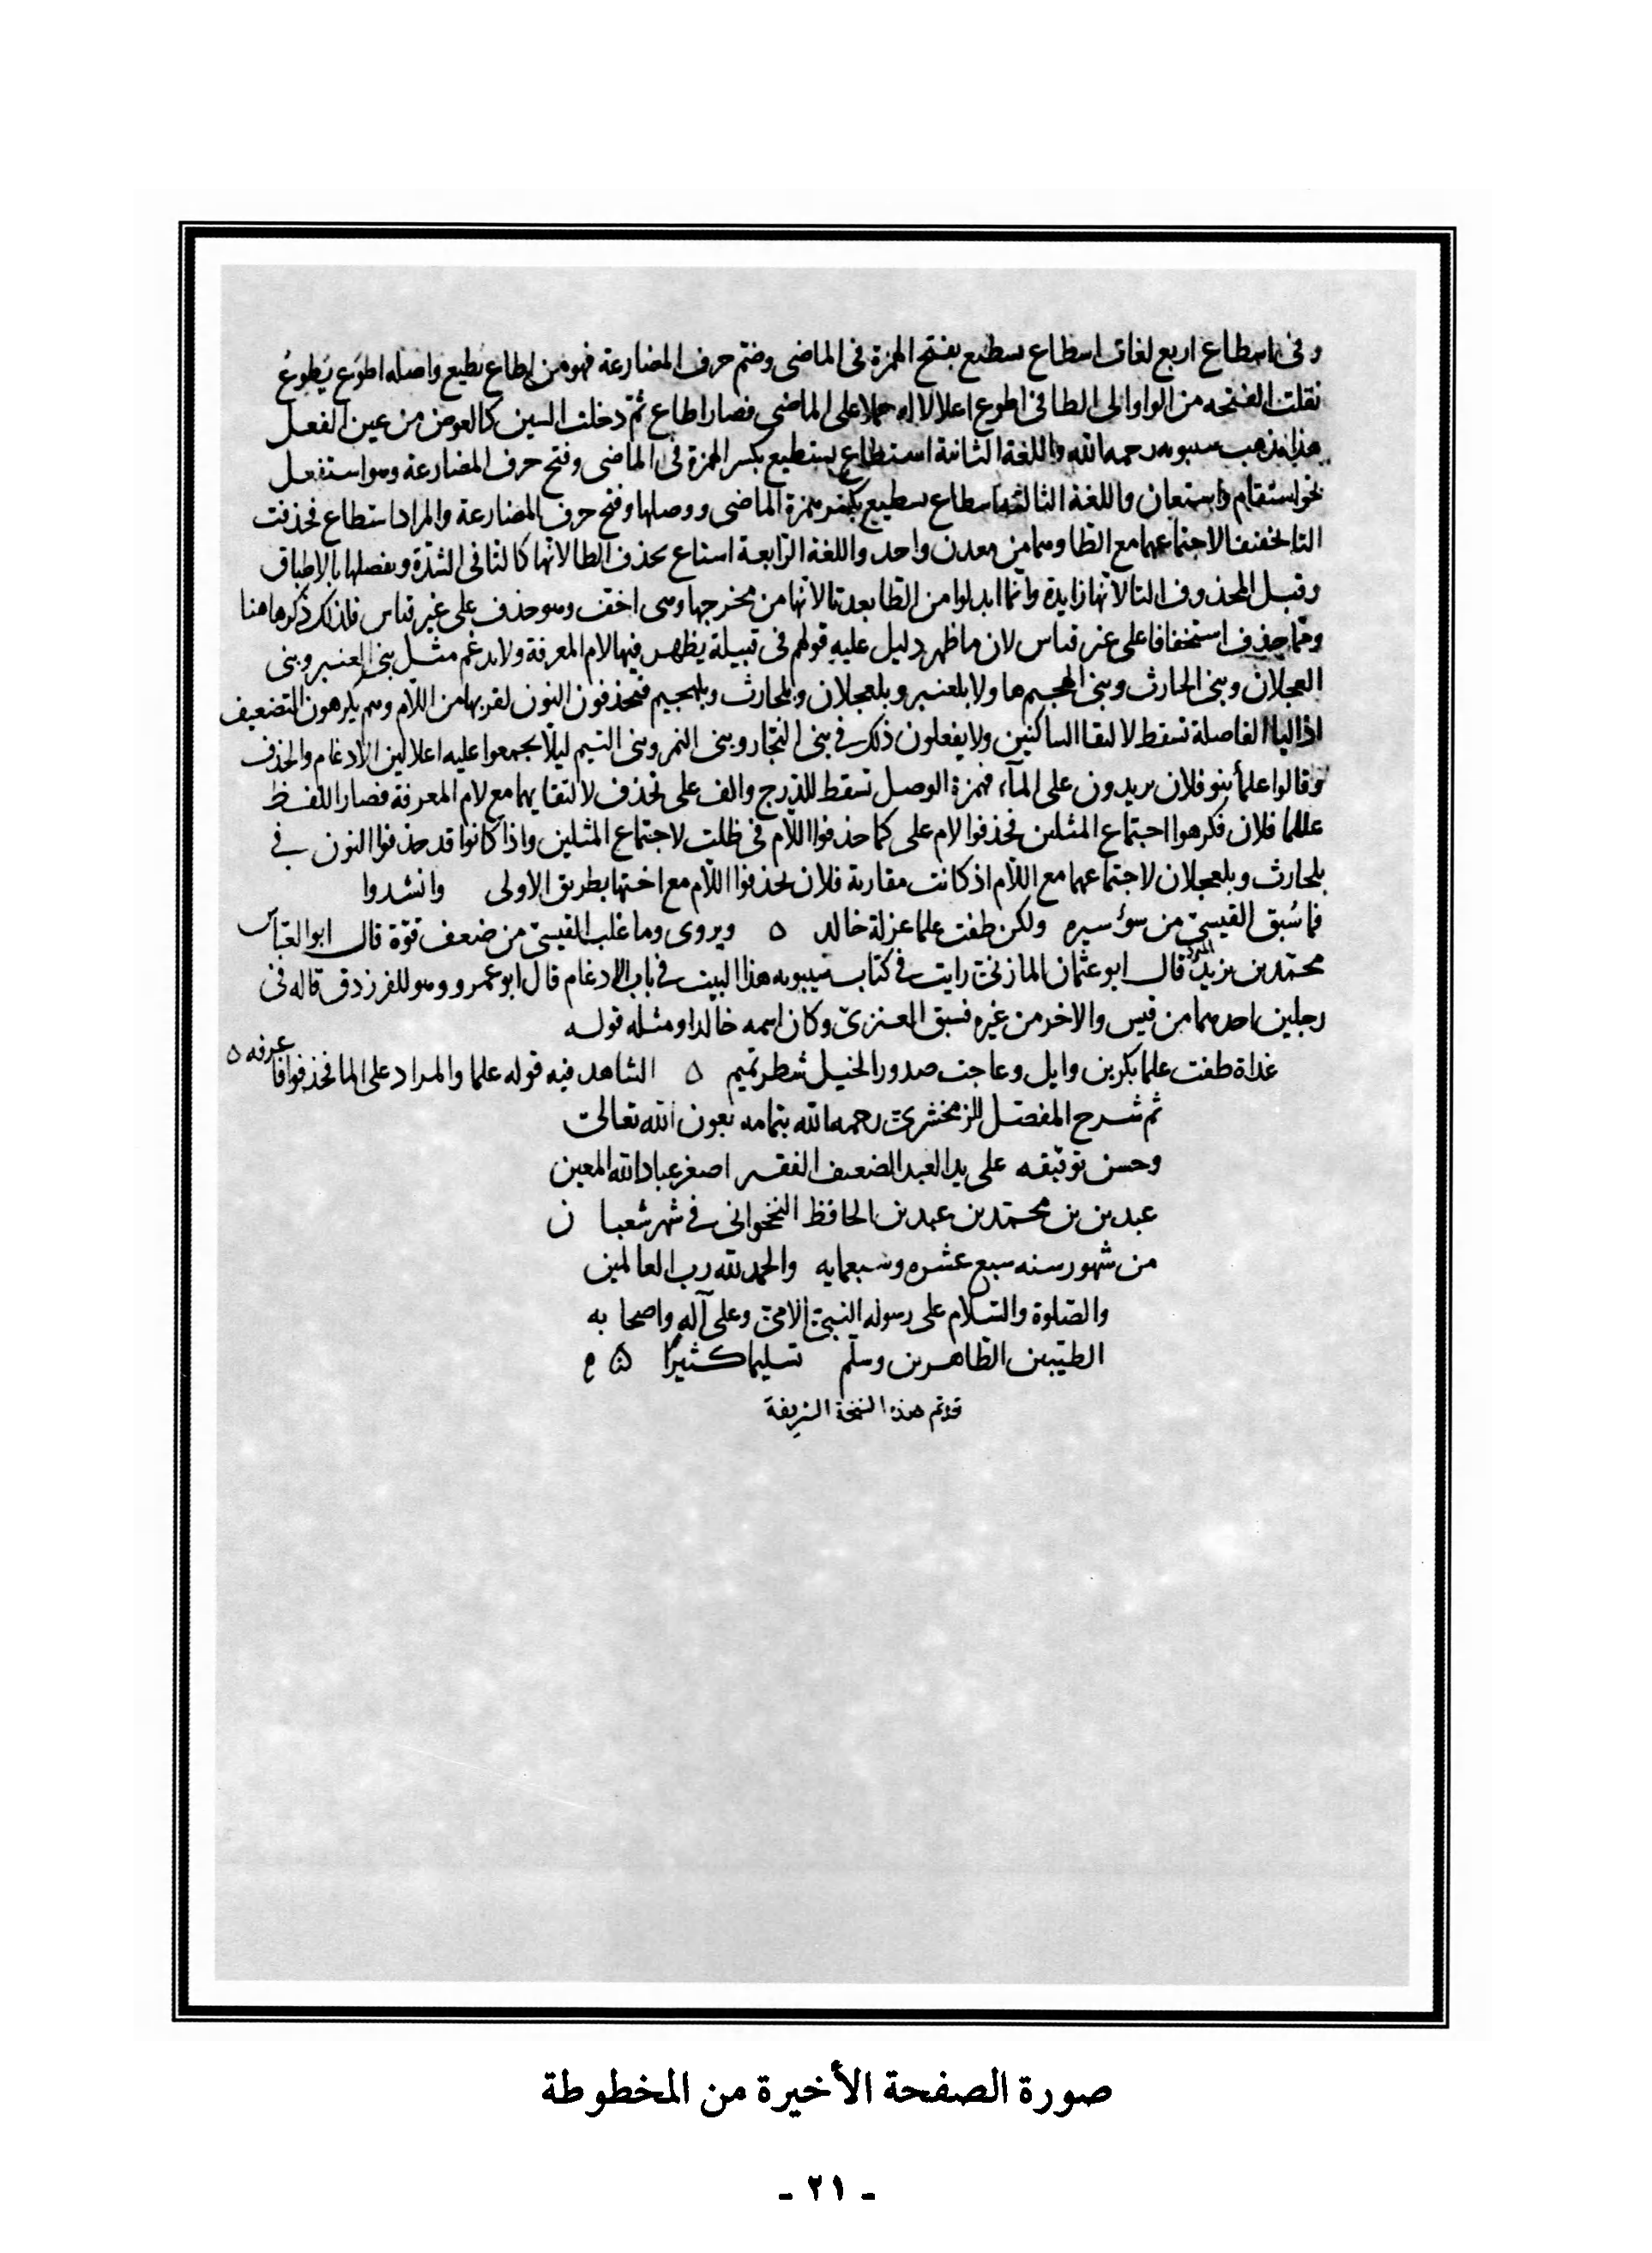 وفى اسطاع اربع لغات اسطاع يسطيع بفتح الهمزة فى الماضى وضم حرف المضارعة فهو من اطاع يطيع واصله اطوع يطوع
نقلت الفتحه من الواو الى الطا فى اطوع اعلالا له حملا على الماضى فصار اطاع ثم دخلت السين كالعوض من عين الفعل
هذا مذهب سيبويه رحمه الله واللغة الثانية استطاع يستطيع بكسر الهمزة فى الماضى وفتح حرف المضارعة وهو استفعل
نحو استقام واستعان واللغة الثالثة اسطاع يسطيع بكسر همزة الماضى ووصلها وفتح حرف المضارعة والمراد استطاع فحذفت
التا تخفيفا لاجتماعهما مع الطا وهما من معدن واحد واللغة الرابعة استاع بحذف الطا لانها كالتا فى الشدة ويفصلها بالاطباق
وقيل المحذوف التا لانها زايدة وانما ابدلوا من الطا بعد تا لانها من مخرجها وهى اخف وهو حذف على غير قياس فلذلك ذكرها هنا
ومما حذف استخفافا على غير قياس لان ما ظهر دليل عليه قولهم فى قبيلة يظهر فيها لام المعرفة ولا يدغم مثل بنى العنبر وبنى
العجلان وبنى الحارث وبنى الهجيم هاولا بلعنبر وبلعجلان وبلحارث وبلهجيم فيحذفون النون لقربها من اللام وهم يكرهون التضعيف
اذ اليا الفاصلة تسقط لالتقا الساكنين ولا يفعلون ذلك فى بنى النجار وبنى النمر وبنى التيم ليلا يجمعوا عليه اعلالين الادغام والحذف
وقالوا علما بنو فلان يريدون على المآء فهمزة الوصل تسقط للدرج والف على تحذف لالتقايها مع لام المعرفة فصار اللفظ
عللما فلان فكرهوا اجتماع المثلين فحذفوا لام على كما حذفوا اللام فى ظلت لاجتماع المثلين واذا كانوا قد حذفوا النون فى
بلحارث وبلعجلان لاجتماعهما مع اللام اذ كانت مقاربة فلان يحذفوا اللام مع اختها بطريق الاولى وانشدوا
فما سبق القيسى من سوء سيره ولكن طفت علما عزلة خالد ٥ ويروى وما غلب القيسى من ضعف قوة قال ابو العباس
محمد بن يزيد المبرد قال ابو عثمان المازنى رايت فى كتاب سيبويه هذا البيت فى باب الادغام قال ابو عمرو وهو للفرزدق قاله فى
رجلين احدهما من قيس والاخر من غيره فسبق العنزى وكان اسمه خالدا ومثله قوله
غداة طفت علما بكر بن وايل وعاجت صدور الخيل شطر تميم ٥ الشاهد فيه قوله علما والمراد على الما فحذفوا فاعرفه ٥
تم شرح المفصل للزمخشرى رحمه الله بتمامه بعون الله تعالى
وحسن توفيقه على يد العبد الضعيف الفقير اصغر عباد الله المعين
بن محمد بن الحافظ النخجوانى فى شهر شعبان
من شهور سنه سبع عشره وسبعمايه والحمد لله رب العالمين
والصلوة والسلام على رسوله النبى الامى وعلى آله واصحابه
الطيبين الطاهرين وسلم تسليما كثيرا
قد تم هذه النسخة الشريفة
صورة الصفحة الأخيرة من المخطوطة
- ٢١ -